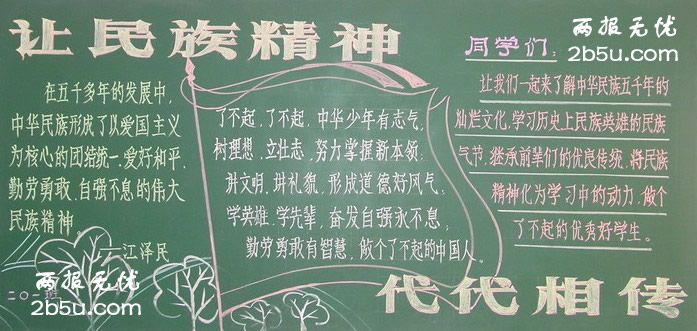 让民族精神
两报无忧
2b5u.com
在五千多年的发展中,
中华民族形成了以爱国主义
为核心的团结统一.爱好和平.
勤劳勇敢.自强不息的伟大
民族精神。
——江泽民
了不起.了不起.中华少年有志气,
树理想.立壮志.努力掌握新本领;
讲文明.讲礼貌.形成道德好风气;
学英雄.学先辈,奋发自强永不息;
勤劳勇敢有智慧,做个了不起的中国人。
同学们:
让我们一起来了解中华民族五千年的
灿烂文化,学习历史上民族英雄的民族
气节.继承前辈们的优良传统.将民族
精神化为学习中的动力.做个
了不起的优秀好学生。
代代相传
两报无忧
2b5u.com
二〇一班